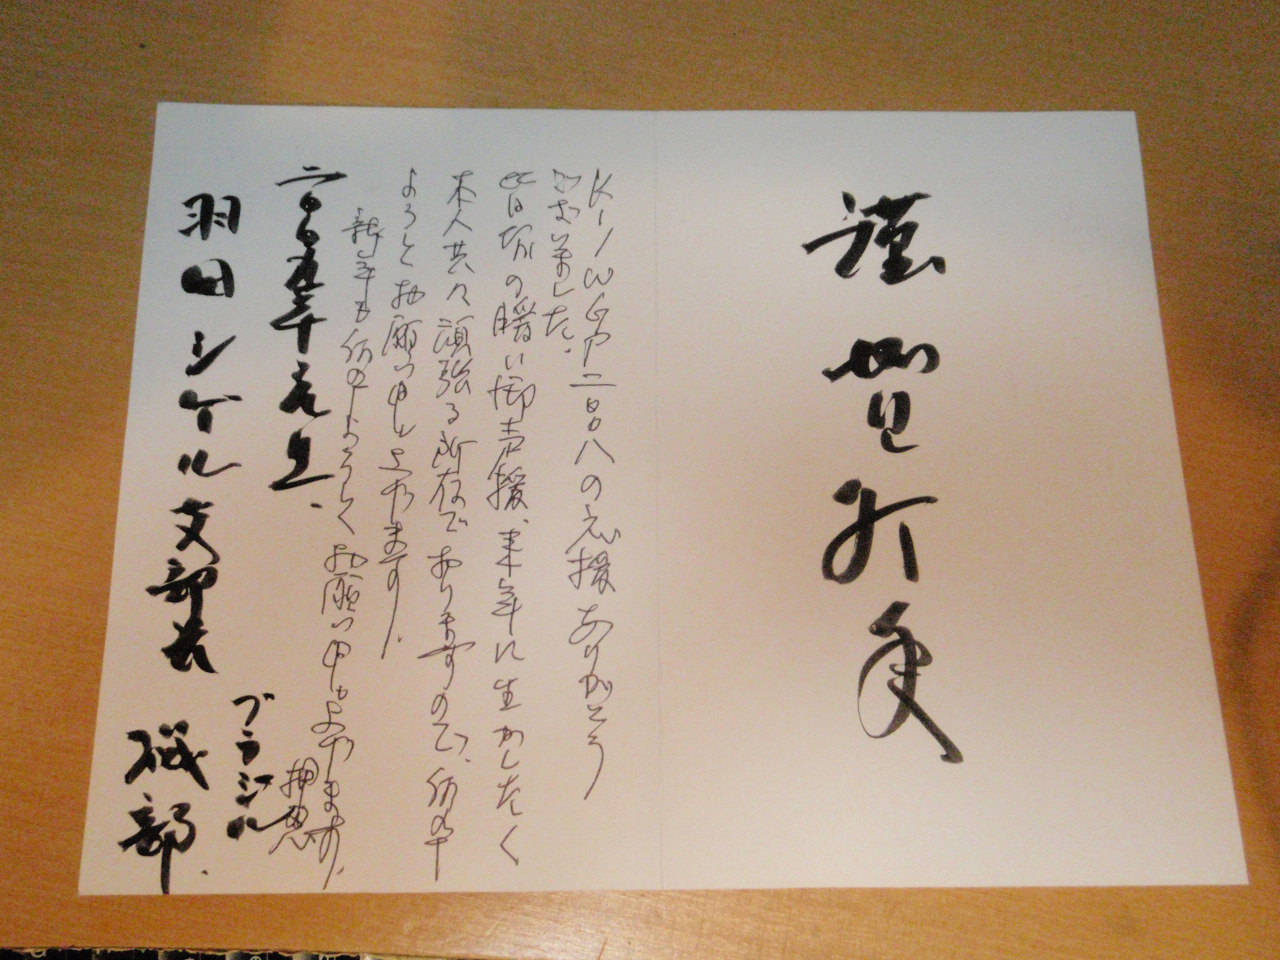 謹賀新年
K-1 WGP二〇〇八の応援ありがとう
ございました。
皆様の暖い御声援、来年に生かしたく
本人共々頑張る所存でありますので、何卒
よろしくお願い申し上げます。
新年も何卒よろしくお願い申し上げます。
押忍
二〇〇九年元旦、
ブラジル
羽田シゲル支部長 磯部.